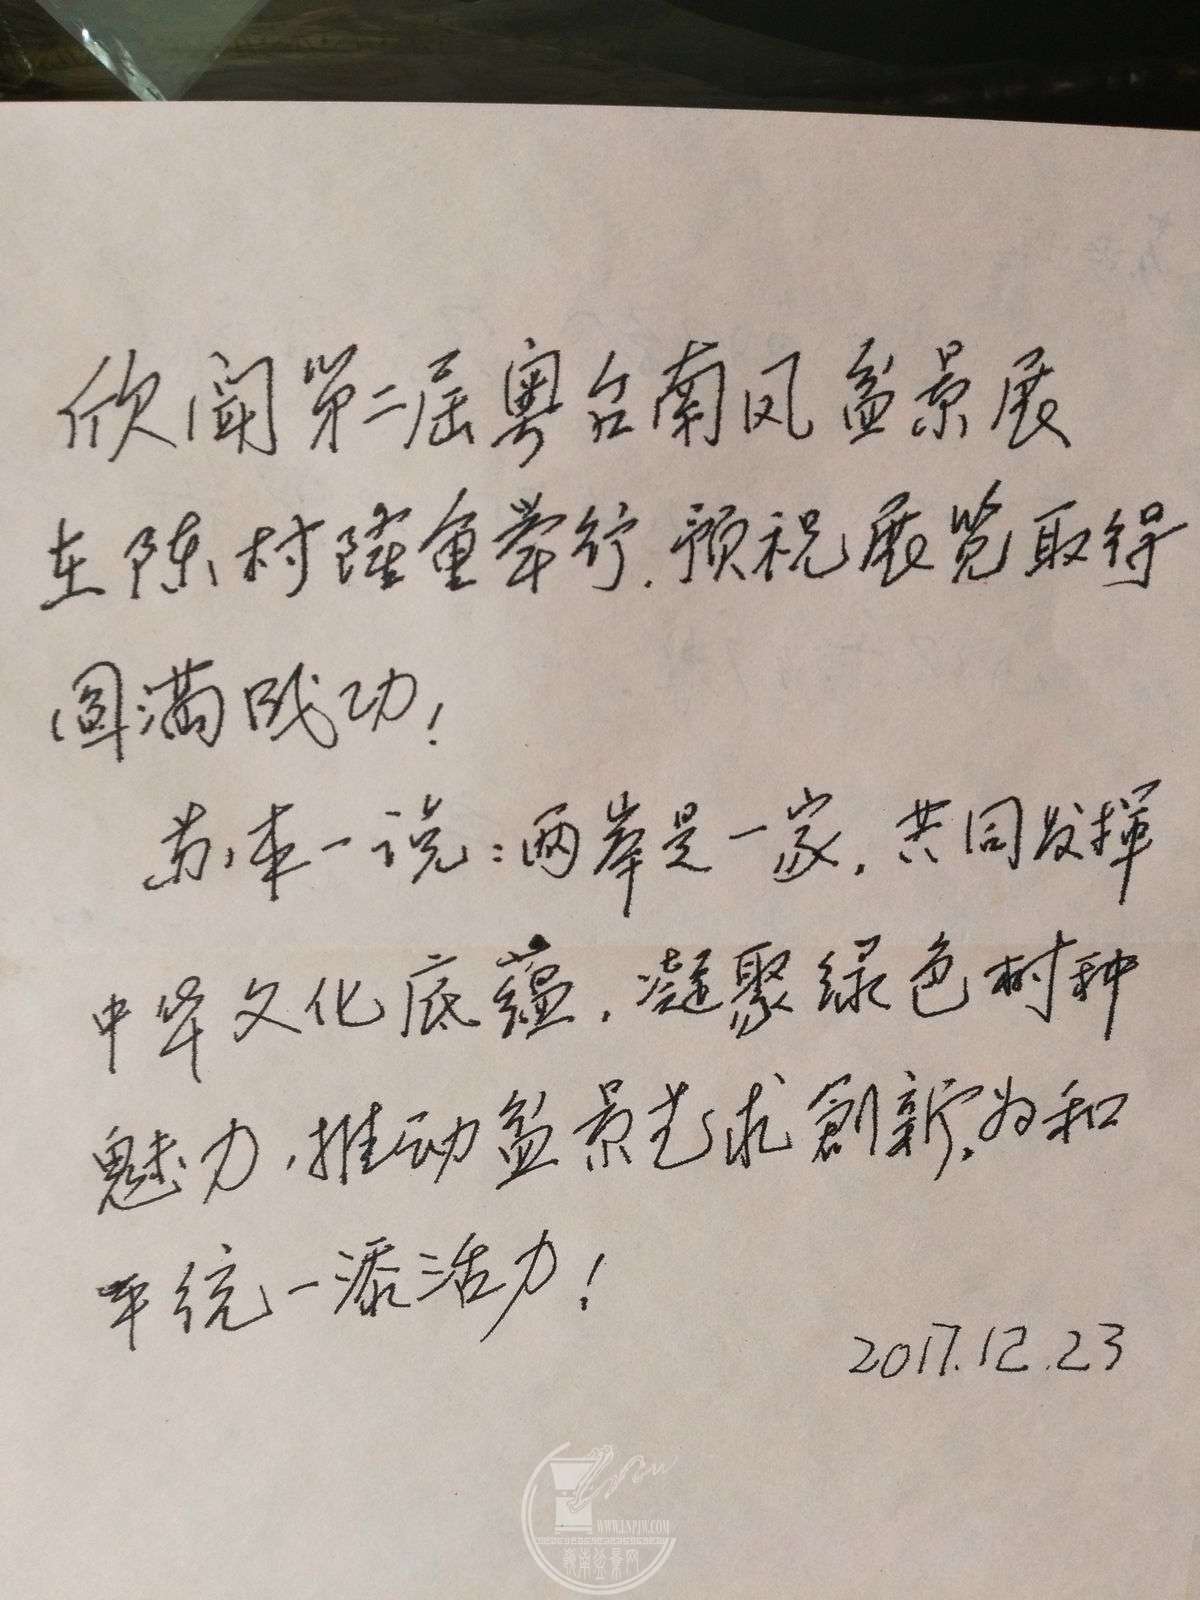 欣闻第二届粤台南风盆景展
在陈村隆重举行.预祝展览取得
圆满成功!
苏本一说:两岸是一家,共同发揮
中华文化底蕴,凝聚绿色树种
魅力,推动盆景艺术創新。为和
平统一添活力!
2017.12.23
WWW.LNPJW.COM
嶺南盆景网